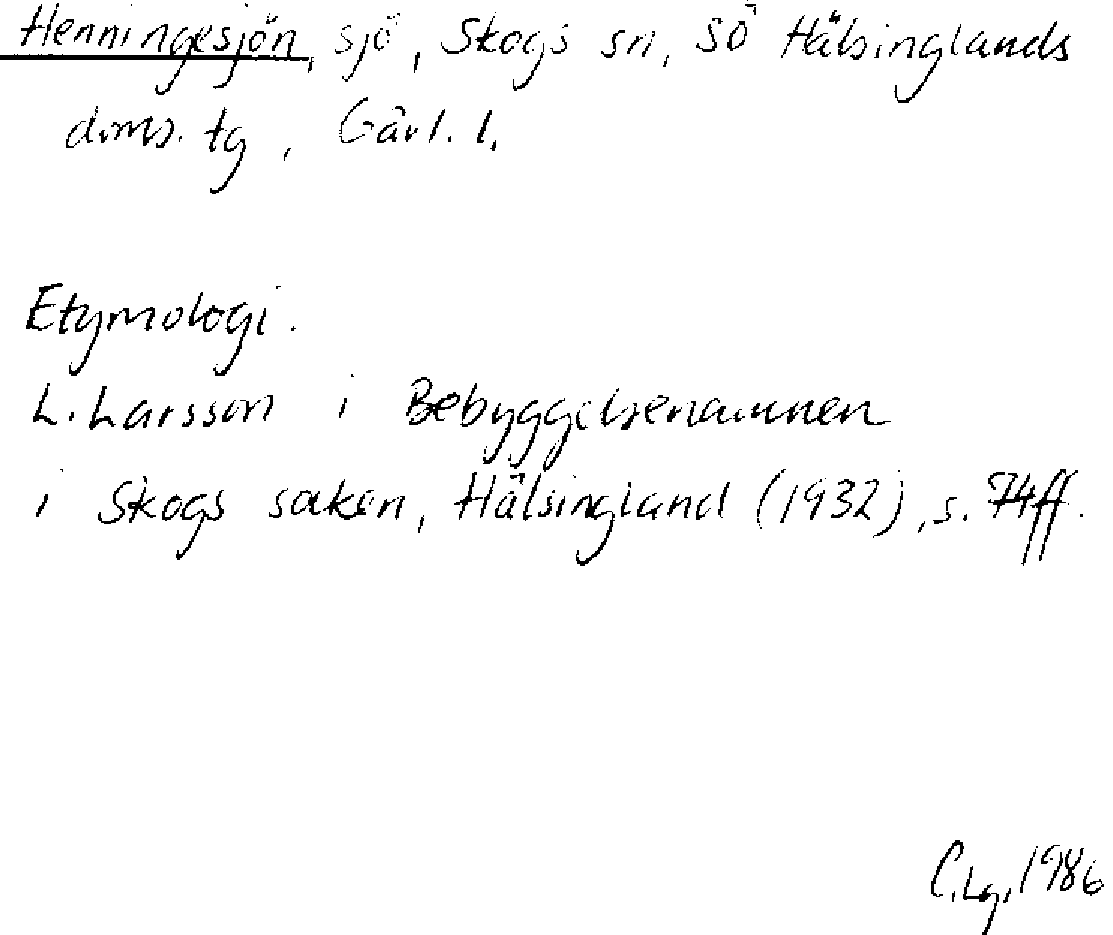 Henningesjön, sjö, Skogs sn, SÖ Hälsinglands
doms. tg, Gävl. l.
Etymologi.
L. Larsson i Bebyggelsenamnen
i Skogs socken, Hälsingland (1932), s. 74ff.
C.Lg. 1986